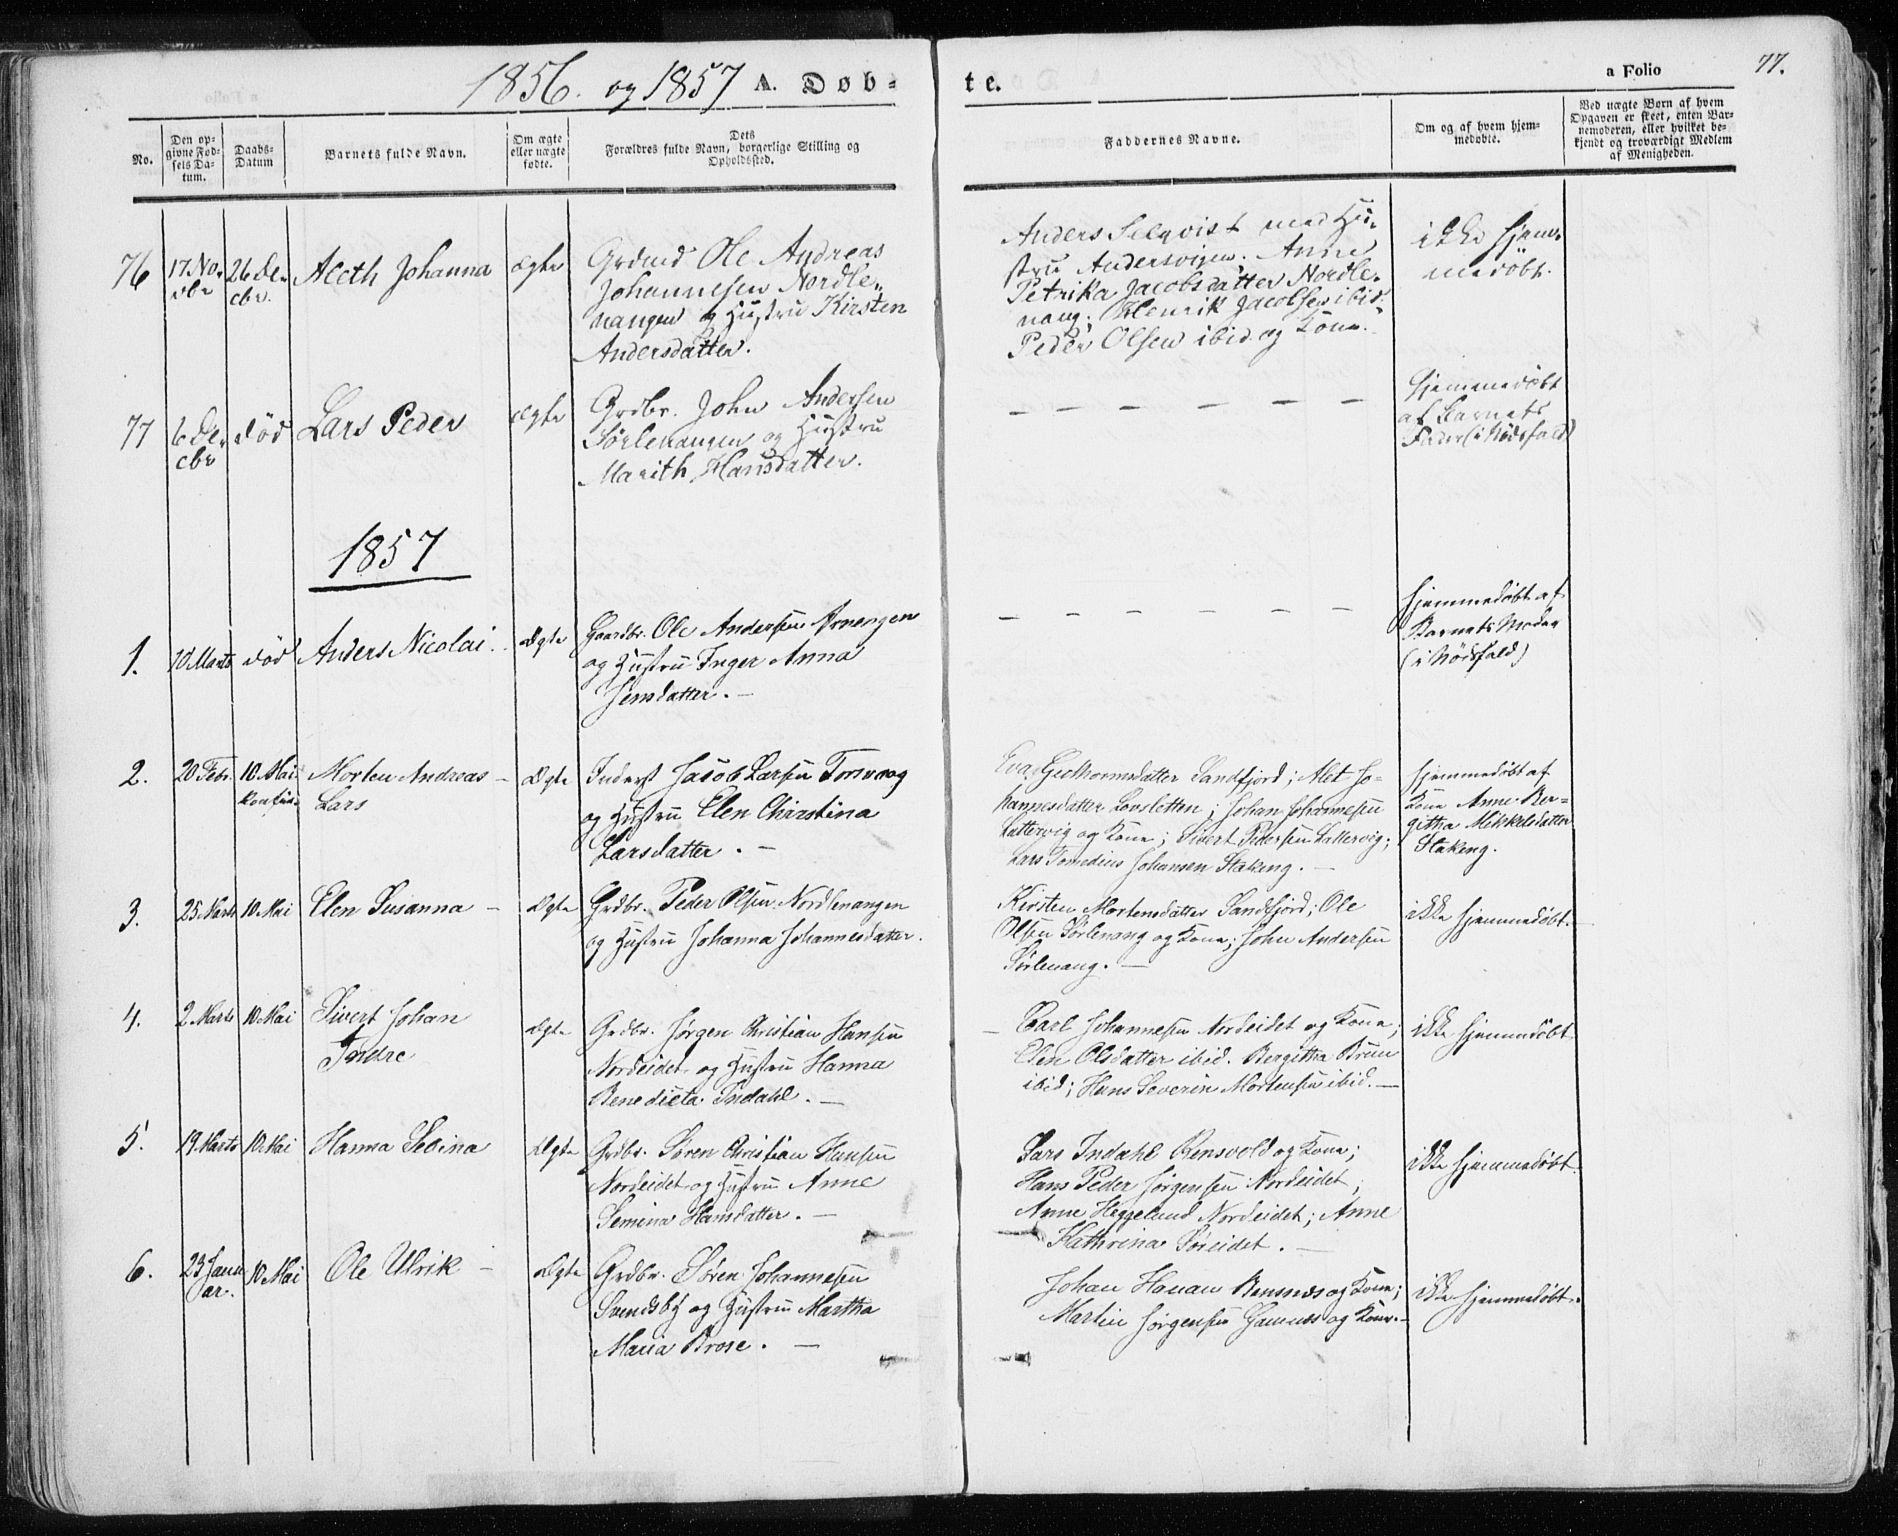 1856. og 1857 A. Døbte.
a Folio 77.
No.
Den opgivne Fødsels Datum.
Daabs-Datum
Barnets fulde Navn.
Om ægte eller uægte fødte.
Dets Forældres fulde Navn, borgerlige Stilling og Opholdssted.
Faddernes Navne.
Om og af hvem hjemmedøbte.
Ved uægte Børn af hvem Opgaven er skeet, enten Barnemoderen, eller hvilket bekjendt og troværdigt Medlem af Menigheden.
76
17 No-
vbr
26 De-
cbr.
Aleth Johanna
ægte
Grdmd Ole Andreas
Johannesen Nordle-
nangen og Hustru Kirsten
Andersdatter.
Anders Selqvist med Hu-
stru Andersvigen. Anne
Petrika Jacobsdatter Nordle-
nang. Henrik Jacobsen ibid.
Peder Olsen ibid og Kone.
ikke hjem-
medøbt.
77
6 De-
cbr
død
Lars Peder
ægte
Grdbr. John Andersen
Sørlenangen og Hustru
Marith Hansdatter.
— — — — — — —
Hjemmedøbt
af Barnets
Fader (i Nødsfald)
1857
1.
10 Marts
død
Anders Nicolai.
Ægte
Gaardbr. Ole Andersen
og Hustru Inger Anna
Jensdatter. —
— — — — — — —
hjemmedøbt af
Barnets Moder
(i Nødsfald)
2.
20 Febr.
10 Mai
Morten Andreas —
Lars
Ægte
Inderst Jacob Larsen Torsvaag
og Hustru Elen Christina
Larsdatter. —
Eva Guthormsdatter Sandfjord; Alet Jo-
hannesdatter; Johan Johannesen
Lattervig og Kone; Sivert Pedersen Lattervig;
Lars Johansen Stakeng. —
hjemmedøbt af
Kone Anne Ber-
githa Mikkelsdatter
Stakeng.
3.
25 Marts
10 Mai
Elen Susanna —
Ægte
Grdbr. Peder Olsen Nordlenangen
og Hustru Johanna Johannesdatter.
Kirsten Mortensdatter Sandfjord; Ole
Olsen Sørlenang og Kone; John Andersen
Sørlenang. —
ikke hjemmedøbt.
4.
2 Marts
10 Mai
Sivert Johan
Andre
Ægte
Grdbr. Jørgen Christian Hansen
Nordeidet og Hustru Hanna
Benedicta Indahl. —
Carl Johannesen Nordeidet og Kone;
Elen Olsdatter ibid. Bergitha Bruun
ibid; Hans Severin Mortensen ibid. —
ikke hjemmedøbt.
5.
19 Marts
10 Mai
Hanna Sedina
Ægte
Grdbr. Søren Christian Hansen
Nordeidet og Hustru Anne
Semina Hansdatter. —
Lars Indahl Rensvold og Kone;
Hans Peder Jørgensen Nordeidet;
Anne Heggelund Nordeidet; Anne
Kathrina Søreidet. —
ikke hjemmedøbt.
6.
23 Janu-
ar.
10 Mai
Ole Ulrik —
Ægte
Grdbr. Søren Johannesen
Svendsby og Hustru Martha
Maria Brose. —
Johan Hanan og Kone;
Martin Jørgensen og Kone. —
ikke hjemmedøbt.